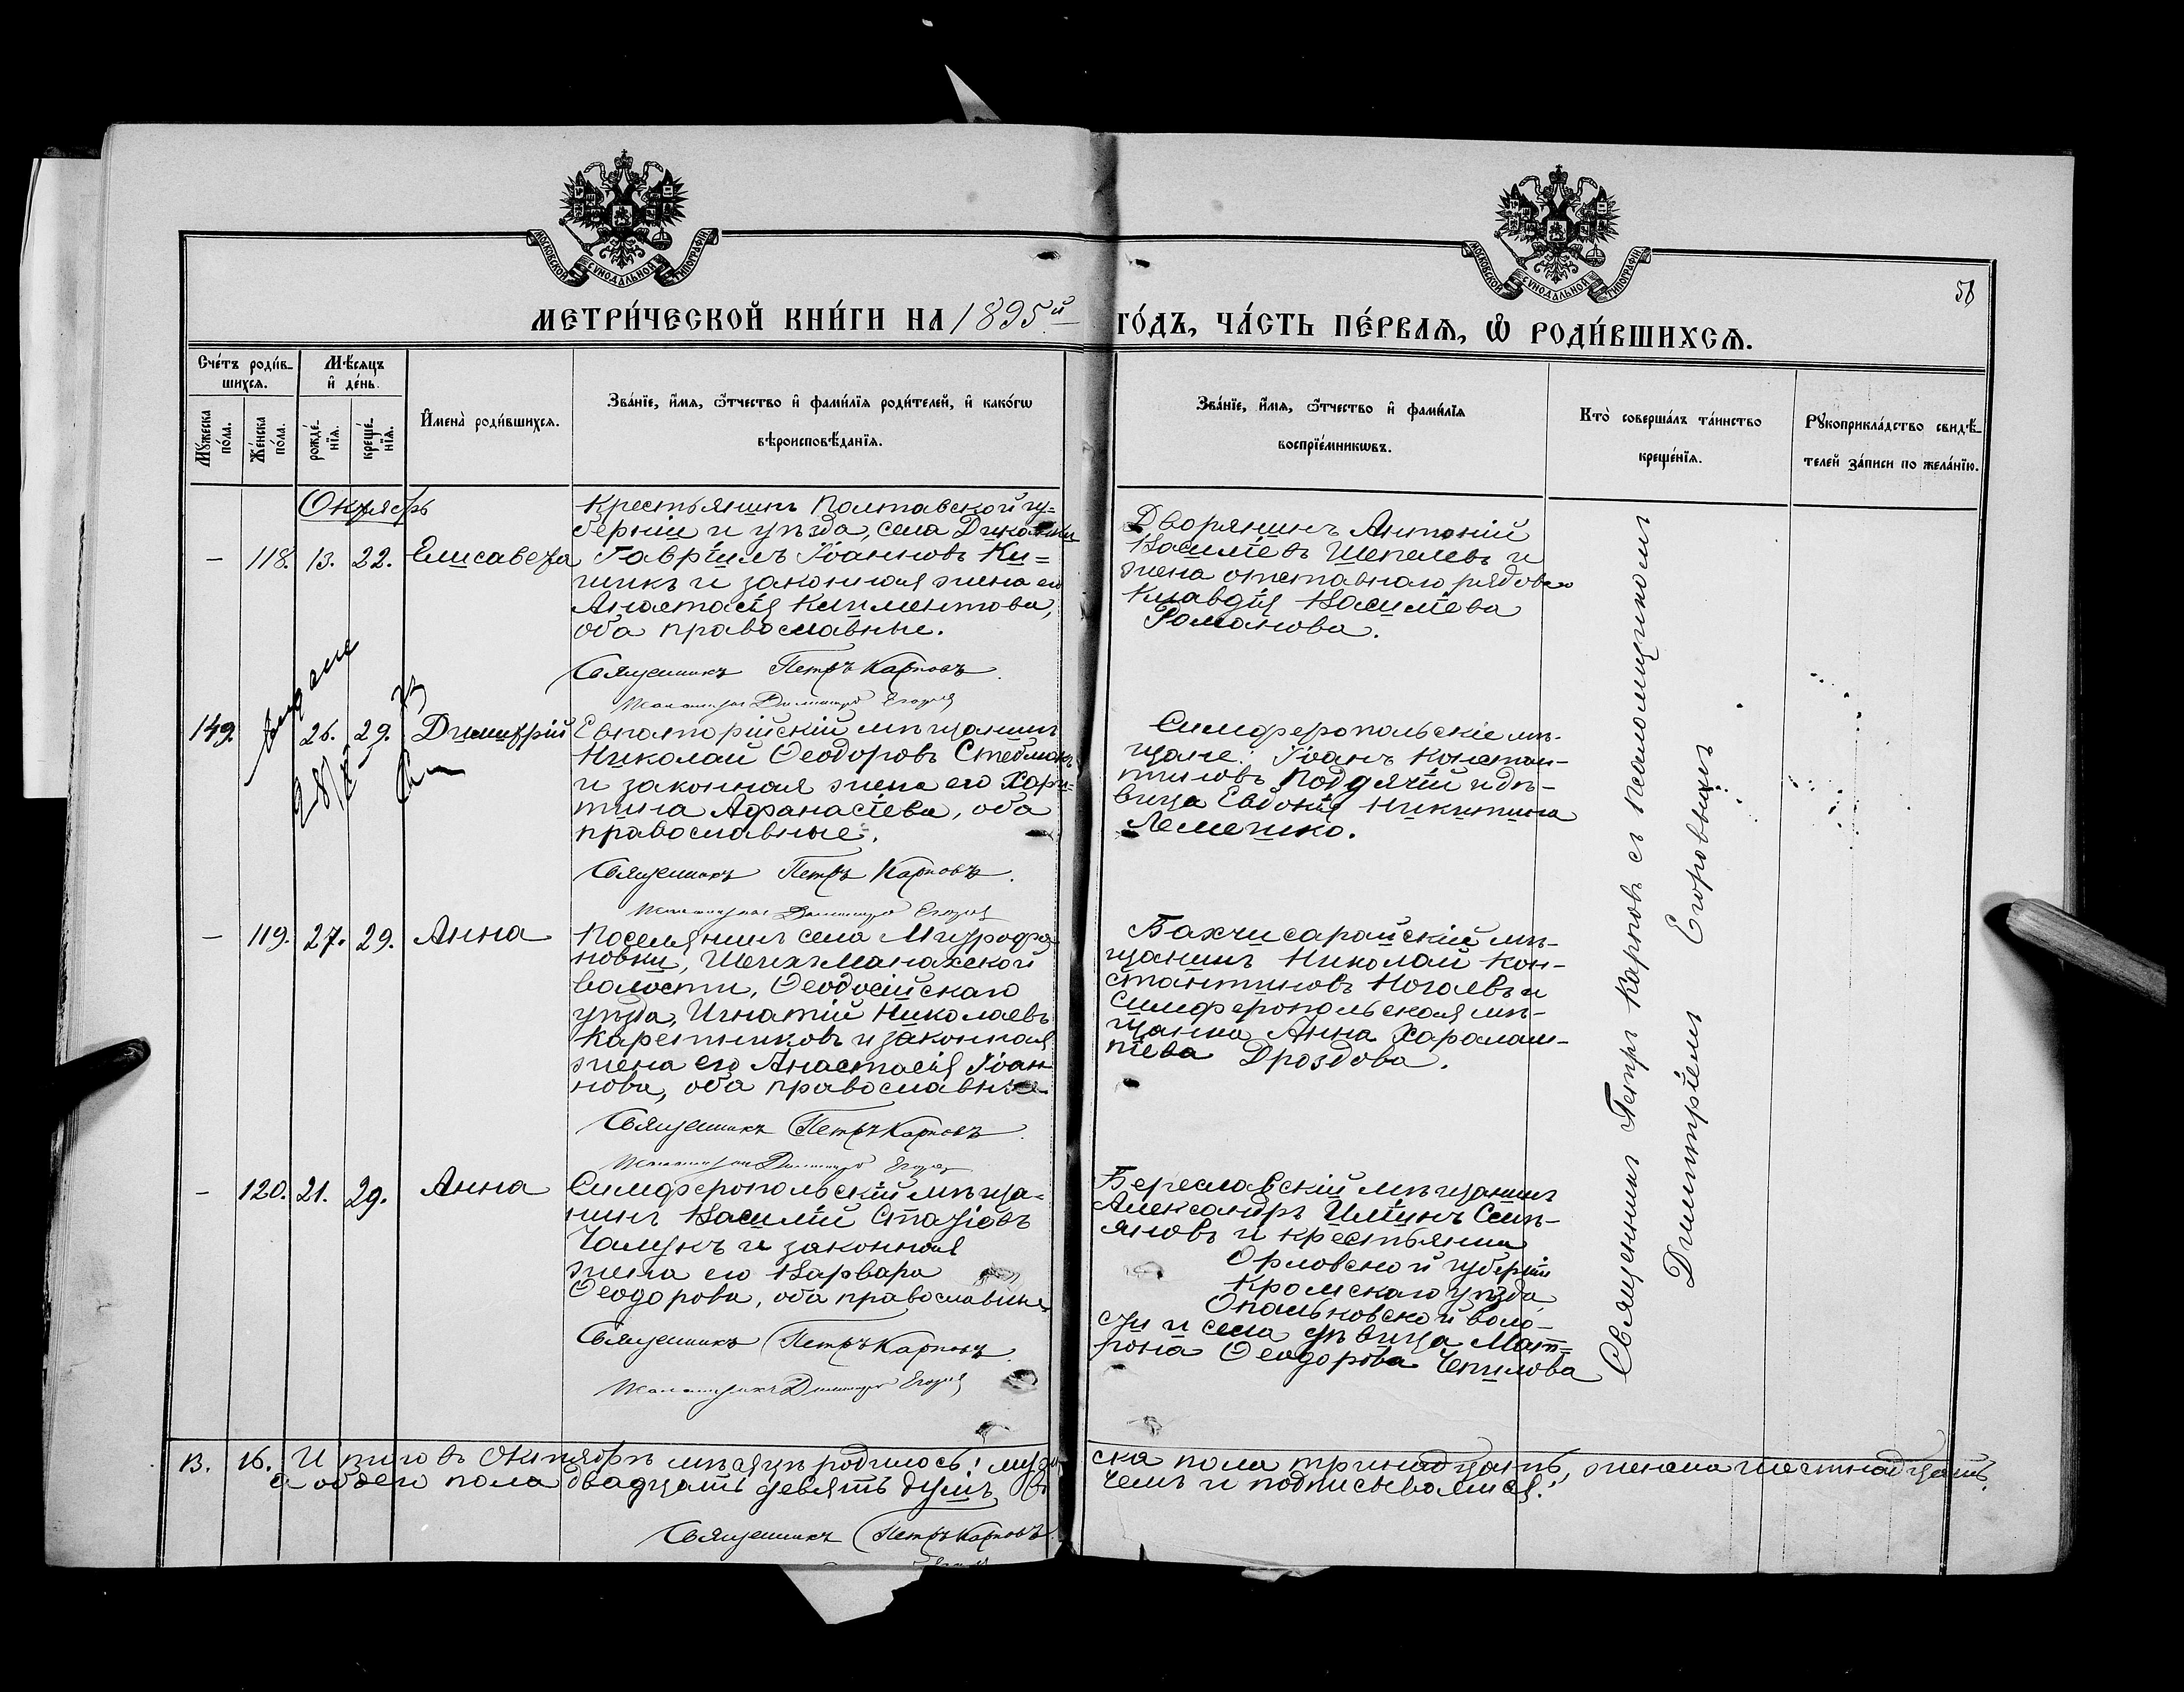 МОСКОВСКОЙ СѴНОДАЛЬНОЙ ТИПОГРАФІИ
МОСКОВСКОЙ СѴНОДАЛЬНОЙ ТИПОГРАФІИ
58
МЕТРИ́ЧЕСКОЙ КНИ́ГИ НА 1895й ГО́ДЪ, ЧА́СТЬ ПЕ́РВАѦ, Ѡ҆ РОДИ́ВШИХСѦ.
Сче́тъ роди́в-
шихсѧ.
Мѣ́сяцъ
и҆ де́нь.
Мꙋ́жеска
по́ла.
Же́нска
по́ла.
рожде́-
нїѧ.
креще́-
нїѧ.
И҆мена̀ роди́вшихсѧ.
Зва́нїе, и҆́мѧ, ѻ҆́тчество и҆ фами́лїѧ роди́телей, и҆ како́гѡ
вѣроисповѣ́данїѧ.
Зва́нїе, и҆́мѧ, ѻ҆́тчество и҆ фами́лїѧ
воспрїе́мникѡвъ.
Кто̀ соверша́лъ та́инство
креще́нїѧ.
Рꙋкоприкла́дство свидѣ́-
телей за́писи по жела́нїю.
Октябрь
— 118. 13. 22. Елисавета
Крестьянинъ Полтавской гу-
берніи и уѣзда, села Диканьки
Гавріилъ Іоанновъ Ки-
шикъ и законная жена его
Анастасія Климентова,
оба православные.
Священникъ Петръ Карповъ.
Псаломщикъ Димитрій Егоровъ
Дворянинъ Антоній
Василіевъ Шепелевъ и
жена отставнаго рядоваго
Клавдія Василіева
Романова.
149. 26. 29. Димитрій
28/
Евпаторійскій мѣщанинъ
Николай Ѳеодоровъ Стебликъ
и законная жена его Хари-
тина Афанасіева, оба
православные.
Священникъ Петръ Карповъ.
Псаломщикъ Димитрій Егоровъ
Симферопольскіе мѣ-
щане: Іоанъ Констан-
тиновъ Подъячій и дѣ-
вица Евдокія Никитина
Лемешко.
— 119. 27. 29. Анна
Поселянинъ села Митрофа-
новки, Шейхъ-Монахской
волости, Ѳеодосійскаго
уѣзда, Игнатій Николаевъ
Каретниковъ и законная
жена его Анастасія Іоан-
нова, оба православные
Священникъ Петръ Карповъ.
Псаломщикъ Димитрій Егоровъ
Бахчисарайскій мѣ-
щанинъ Николай Кон-
стантиновъ Ногаевъ и
Симферопольская мѣ-
щанка Анна Харалам-
піева Дроздова.
— 120. 21. 29. Анна
Симферопольскій мѣща-
нинъ Василій
и законная
жена его Варвара
Ѳеодорова, оба православные
Священникъ Петръ Карповъ.
Псаломщикъ Димитрій Егоровъ
Береславскій мѣщанинъ
Александръ
и крестьянка
Орловской губерніи
Кромскаго уѣзда,
Опальковской воло-
сти и села дѣвица Мат-
рона Ѳеодорова Чепилова
Священникъ Петръ Карповъ съ псаломщикомъ
Димитріемъ Егоровымъ
13. 16. Итого въ Октябрѣ мѣсяцѣ родилось: муже-ска пола тринадцать, женска шестнадцать,
а обоего пола двадцать девять душъ въ чемъ и подписываемся.
Священникъ Петръ Карповъ.